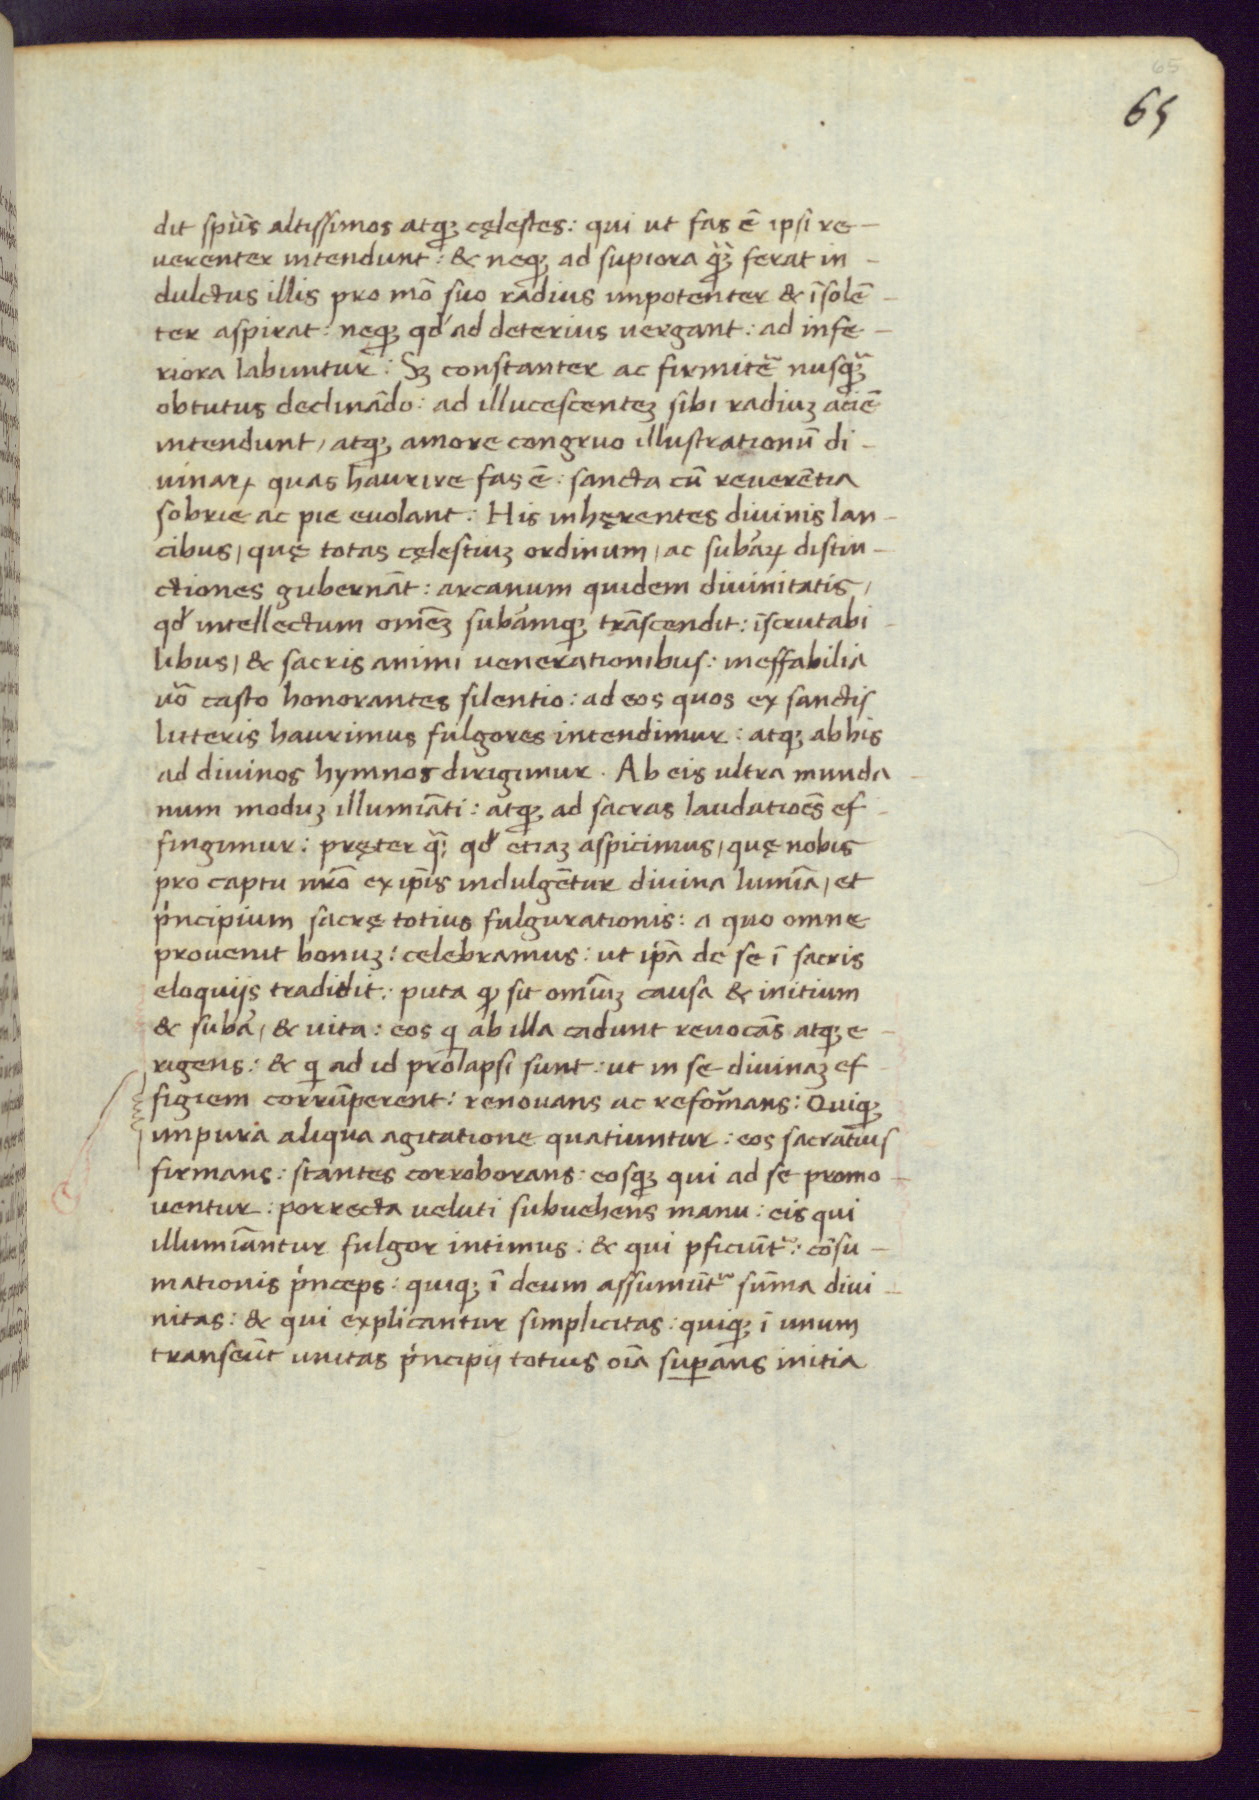 65
65
dit sp̄ūs altissimos atq; cęlestes: qui ut fas ē ipsi re-
uerenter intendunt: & neq; ad supiora q̄; ferat in-
dulctus illis pro mō suo radius impotenter & īsolē-
ter aspirat: neq; qđ ad deterius uergant: ad infe-
riora labuntur: Sꝫ constanter ac firmitē nusq̄;
obtutus declinādo: ad illucescenteꝫ sibi radiuꝫ aciē
intendunt, atq; amore congruo illustrationū di-
uinaꝝ quas haurire fas ē: sancta cū reuerētia
sobrie ac pie euolant: His inhęrentes diuinis lan-
cibus, quę totas cęlestiuꝫ ordinum, ac subāꝝ distin-
ctiones gubernāt: arcanum quidem diuinitatis,
qđ intellectum omēꝫ subāmq; trāscendit: īscrutabi-
libus, & sacris animi uenerationibus: ineffabilia
uō casto honorantes silentio: ad eos quos ex sanctis
litteris haurimus fulgores intendimur: atq; ab his
ad diuinos hymnos dirigimur. Ab eis ultra munda-
num moduꝫ illumiāti: atq; ad sacras laudatioēs ef-
fingimur: pręter q̄; qđ etiaꝫ aspicimus, quę nobis
pro captu nr̄o ex ip̄is indulgētur diuina lumīa, et
p̍ncipium sacrę totius fulgurationis: a quo omne
prouenit bonuꝫ: celebramus: ut ip̄a de se ī sacris
eloquijs tradidit: puta q; sit omīuꝫ causa & initium
& subā, & uita: eos q ab illa cadunt reuocās atq; e-
rigens: & q ad id prolapsi sunt: ut in se diuinaꝫ ef-
figiem corrūperent: renouans ac refōmans: Quiq;
impura aliqua agitatione quatiuntur: eos sacratius
firmans: stantes corroborans: eosq; qui ad se promo-
uentur: porrecta ueluti subuehens manu: eis qui
illumiāntur fulgor intimus: & qui pficiūt̄: cōsu-
mationis p̍nceps: quiq; ī deum assumūt̄ sūma diui-
nitas: & qui explicantur simplicitas: quiq; ī unum
transeūt unitas p̍ncipij totius oīa sup̄ans initia